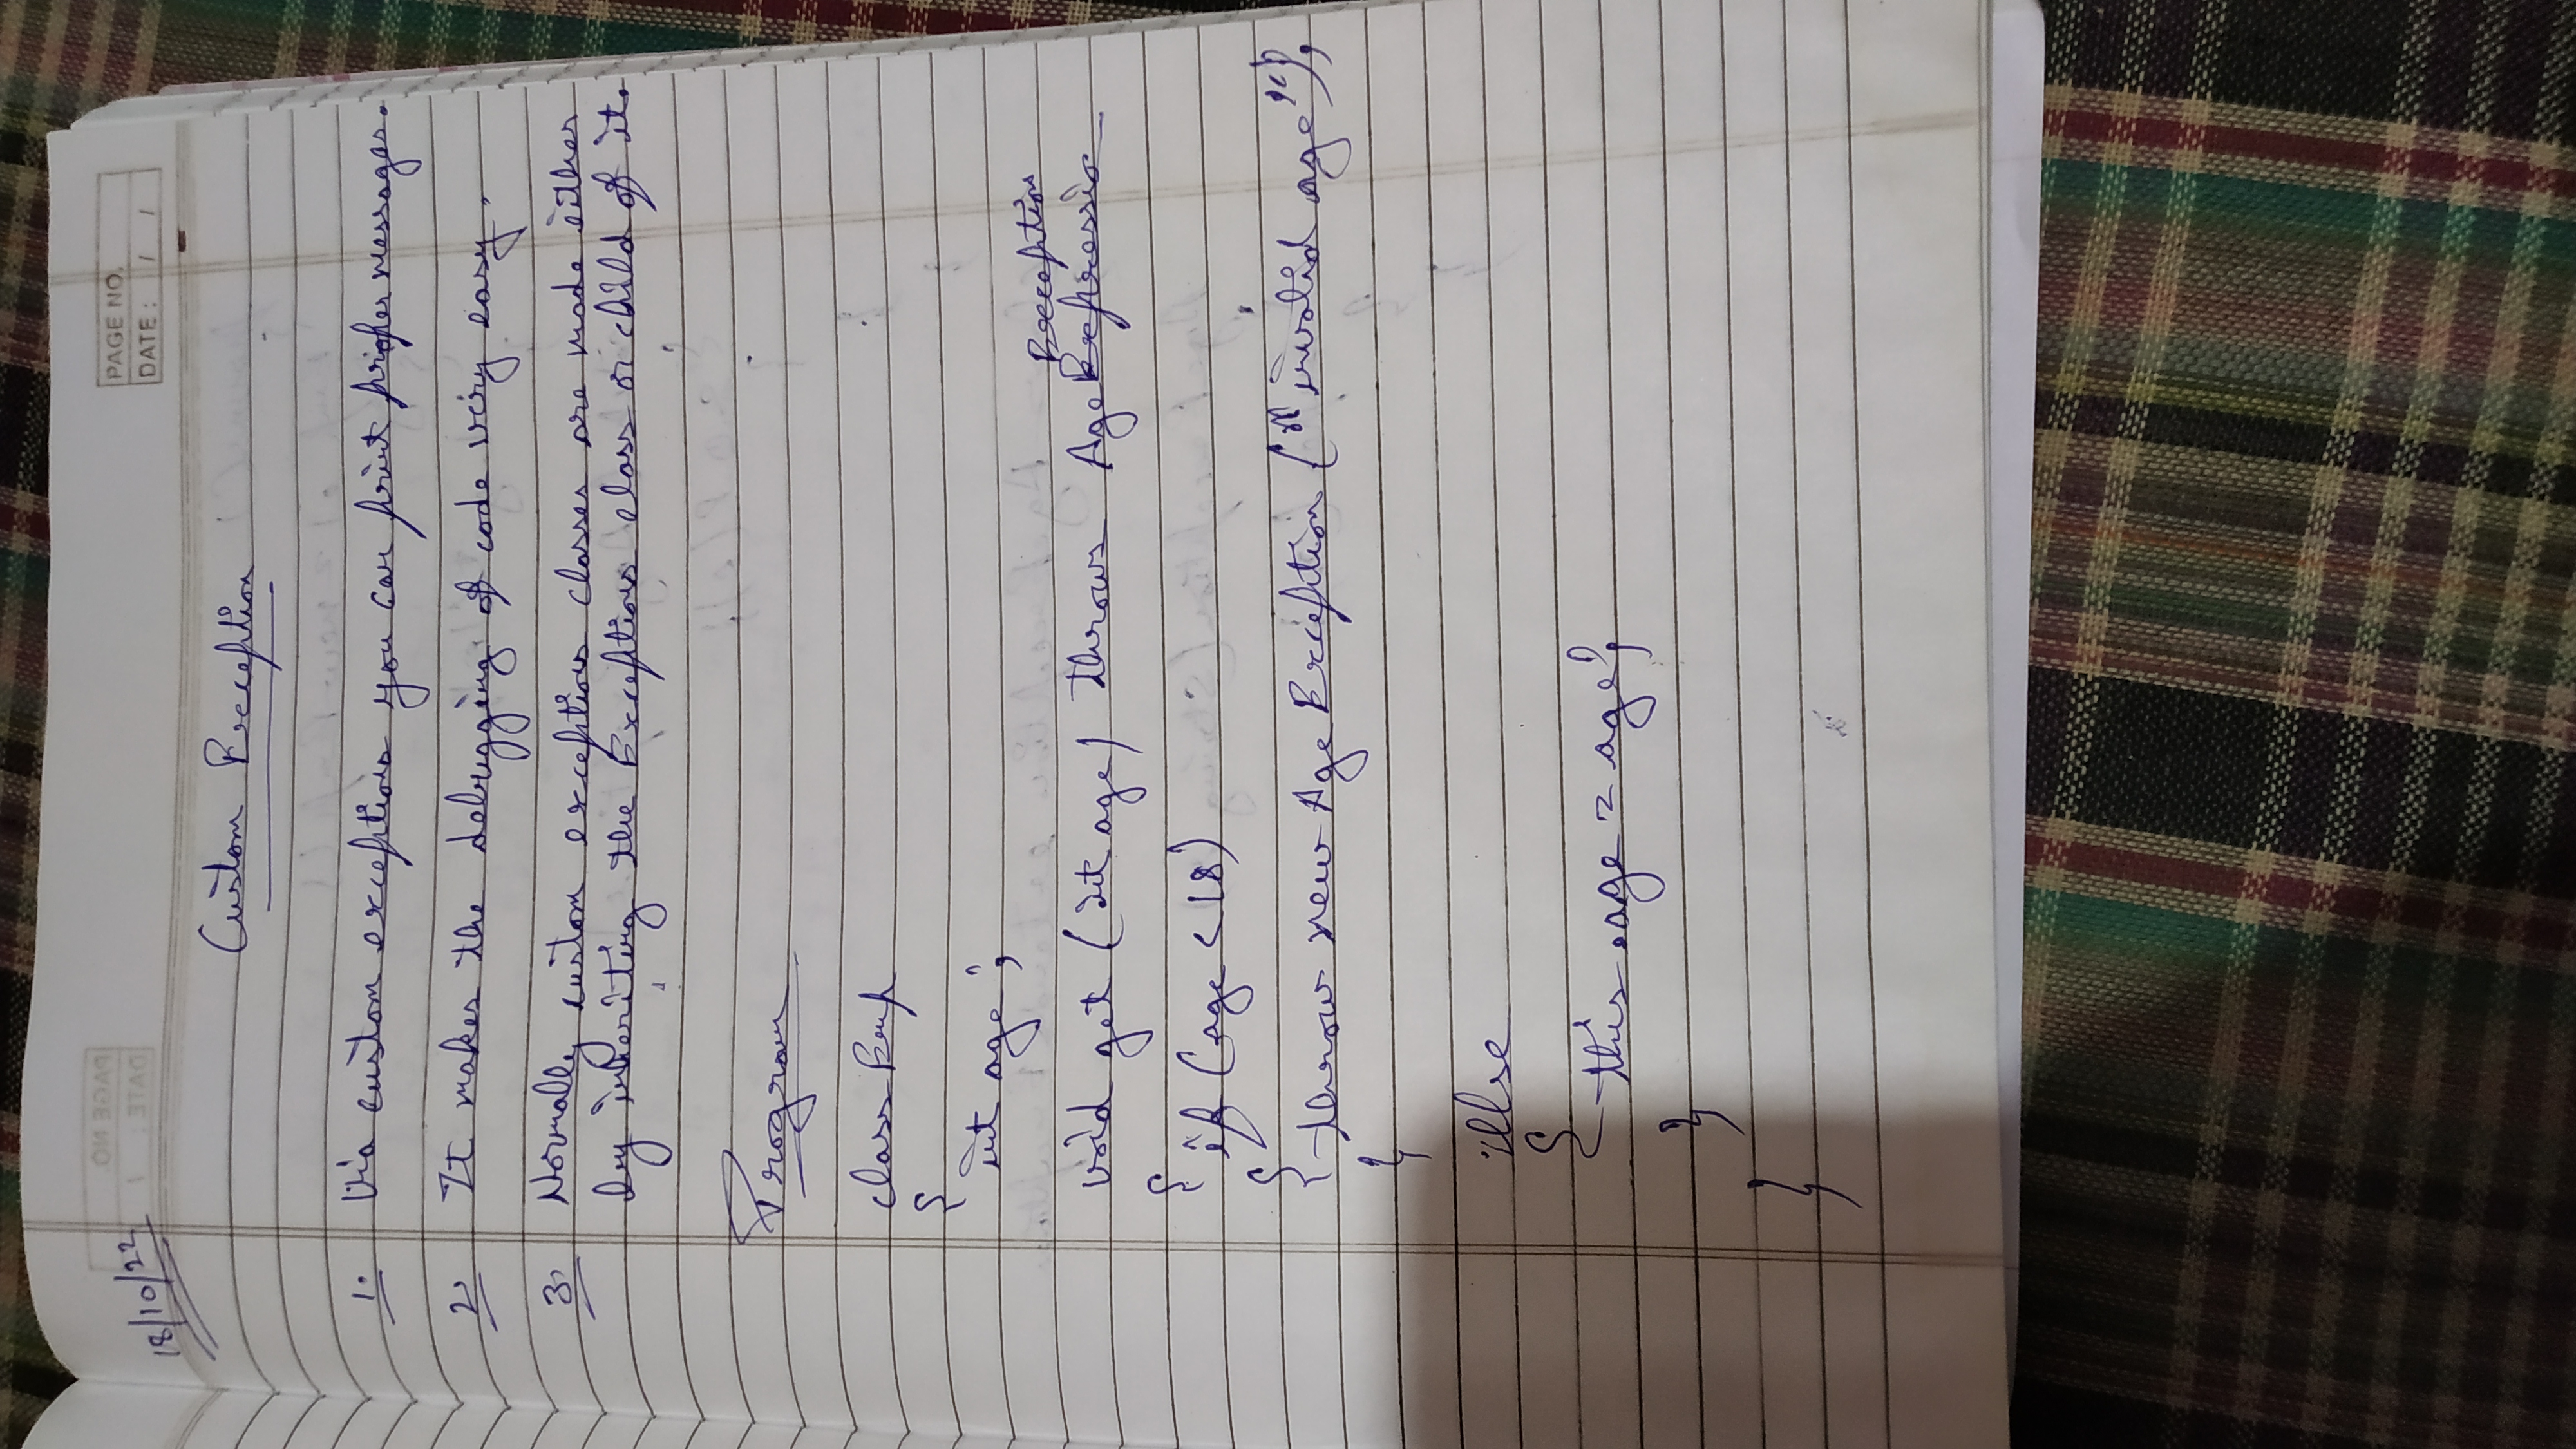 18/10/22
PAGE NO.
DATE: / /
Custom Exception
1. Via custom exceptions you can print proper messages.
2. It makes the debugging of code very easy.
3. Normally custom exceptions classes are made either
by inheriting the Exceptions class or child of it.
Program
class Emp
{
int age;
Exception
void get (int age) throws Age
{ if (age < 18)
{ throw new Age Exception ("invalid age");
}
else
{ this.age = age;
}
}